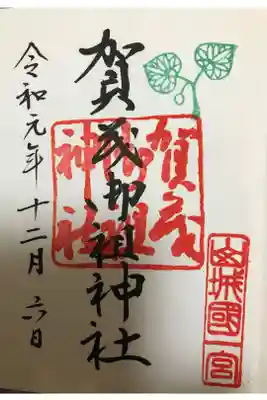 山城國一宮
賀茂御祖神社
賀茂御祖神社
令和元年十二月六日